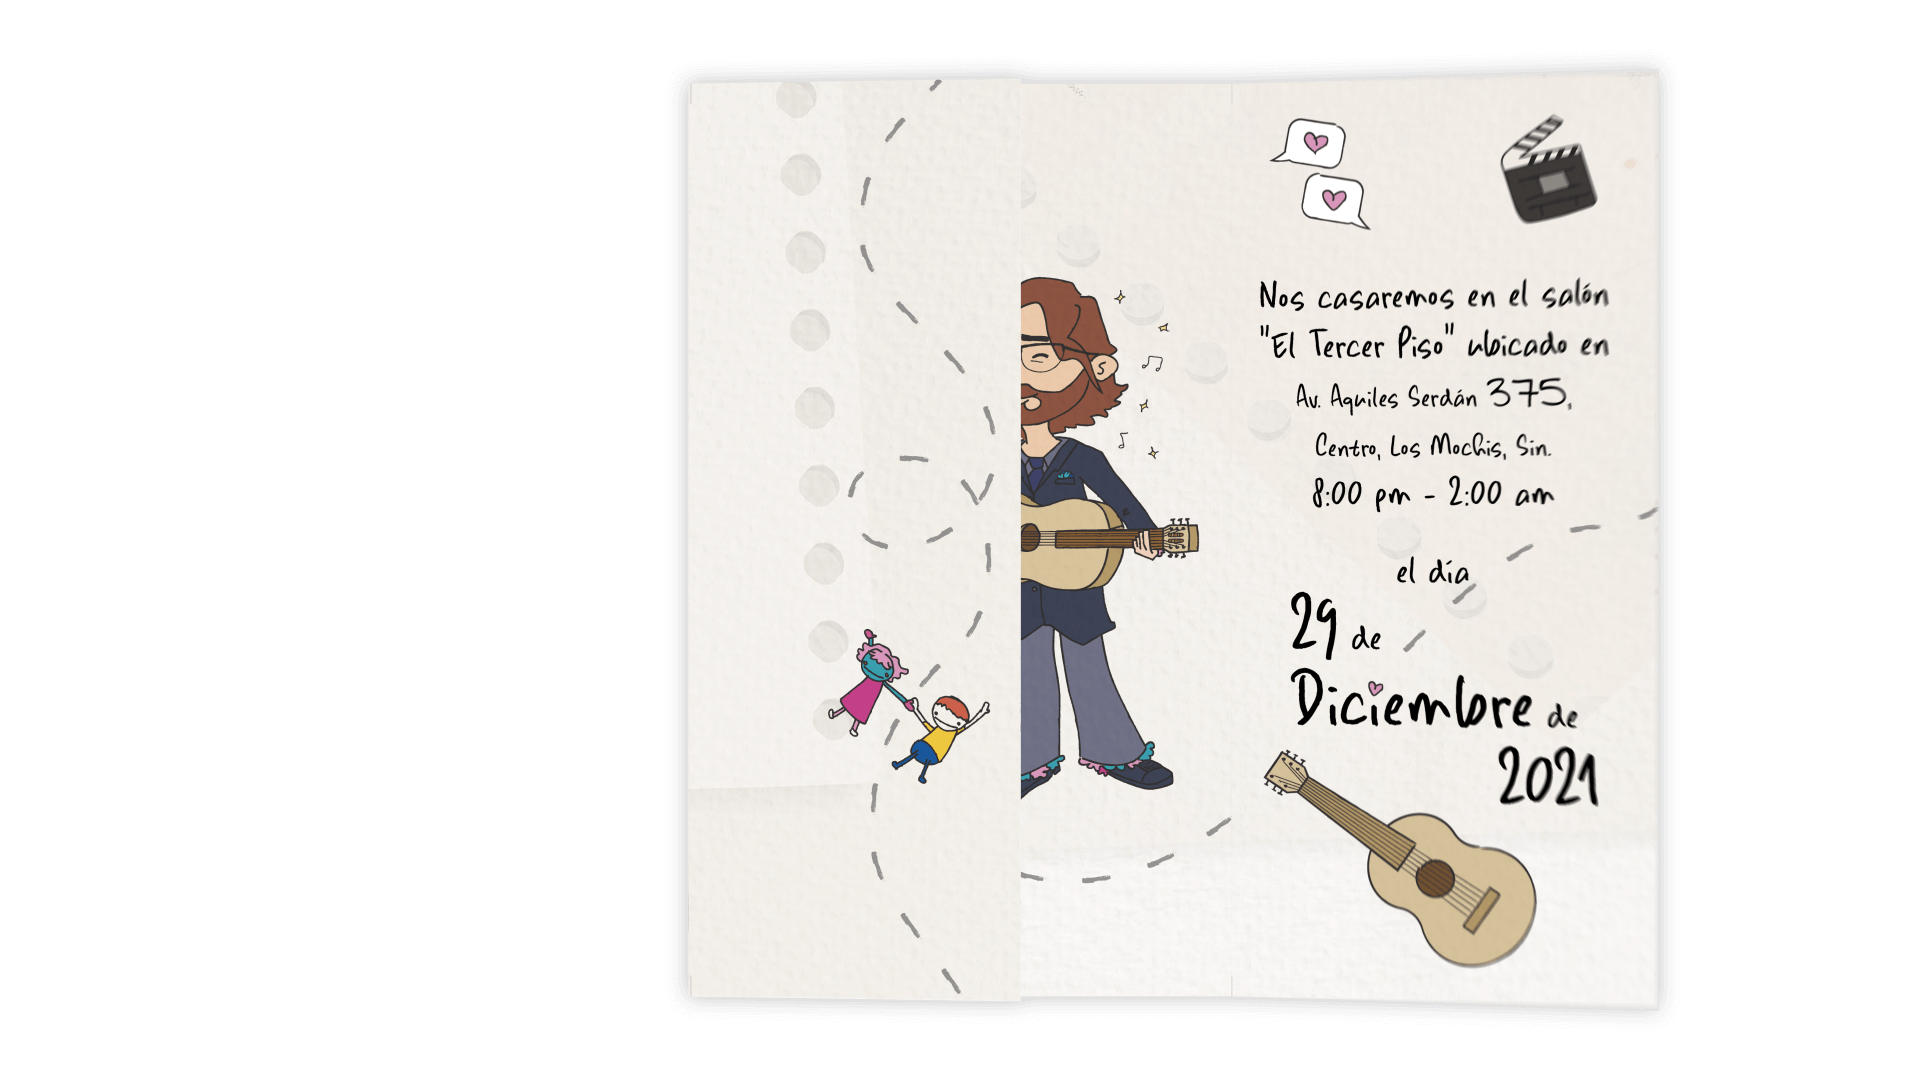 Nos casaremos en el salón
"El Tercer Piso" ubicado en
Av. Aquiles Serdán 375,
Centro, Los Mochis, Sin.
8:00 pm - 2:00 am
el día
29 de
Diciembre de
2021